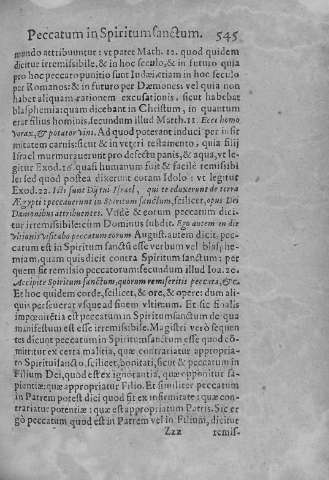 Peccatum in Spiritum sanctum. 545
mundo attribuuntur: vt patet Math. 12. quod quidem
dicitur irremissibile, & in hoc seculo, & in futuro quia
pro hoc peccato puniti sunt Iudæi, etiam in hoc seculo
per Romanos: & in futuro per Dæmones: vel quia non
habet aliquam rationem excusationis. sicut habebat
blasphemia: quam dicebant in Christum, in quantum
erat filius hominis, secundum illud Matth. 11. Ecce homo
vorax, & potator vini. Ad quod poterant induci per infir
mitatem carnis: sicut & in veteri testamento, quia filij
Israel murmurauerunt pro defectu panis, & aquæ, vt le-
gitur Exod. 16. quasi humanum fuit & facilè remissibi
le: sed quod postea dixerunt coram Idolo: vt legitur
Exod. 22. Isti sunt Dij tui Israel, qui te eduxerunt de terra
Ægypti: peccauerunt in Spiritum sanctum, scilicet, opus Dei
Dæmonibus attribuentes. Vnde & eorum peccatum dici
tur irremissibile: cum Dominus subdit. Ego autem in die
vltionis visitabo peccatum eorum August. autem dicit, pec-
catum est in Spiritum sanctũ esse verbum vel blasphe-
miam, quam quis dicit contra Spiritum sanctum: per
quem fit remissio peccatorum: secundum illud Ioa. 20.
Accipite Spiritum sanctum, quorum remiseritis peccata, &c.
Et hoc quidem corde, scilicet, & ore, & opere: dum ali-
quis perseuerat vsque ad finem vltimum. Et sic finalis
impœnitētia est peccatum in Spiritum sanctum de qua
manifestum est esse irremissibile. Magistri verò sequen
tes dicunt peccatum in Spiritum sanctum esse quod cō-
mittitur ex certa malitia, quæ contrariatur appropria-
to Spiritui sancto, scilicet, bonitati, sicut & peccatum in
Filium Dei, quod est ex ignorantia, quæ opponitur sa-
pientiæ: quæ appropriatur Filio. Et similiter peccatum
in Patrem potest dici quod fit ex infirmitate: quæ con-
trariatur potentiæ: quæ est appropriatum Patris. Sic er
gò peccatum quod est in Patrem vel in Filium, dicitur
Zzz remis-